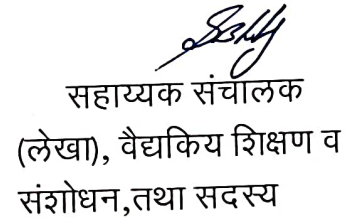 सहाय्यक संचालक
(लेखा), वैद्यकिय शिक्षण व
संशोधन,तथा सदस्य